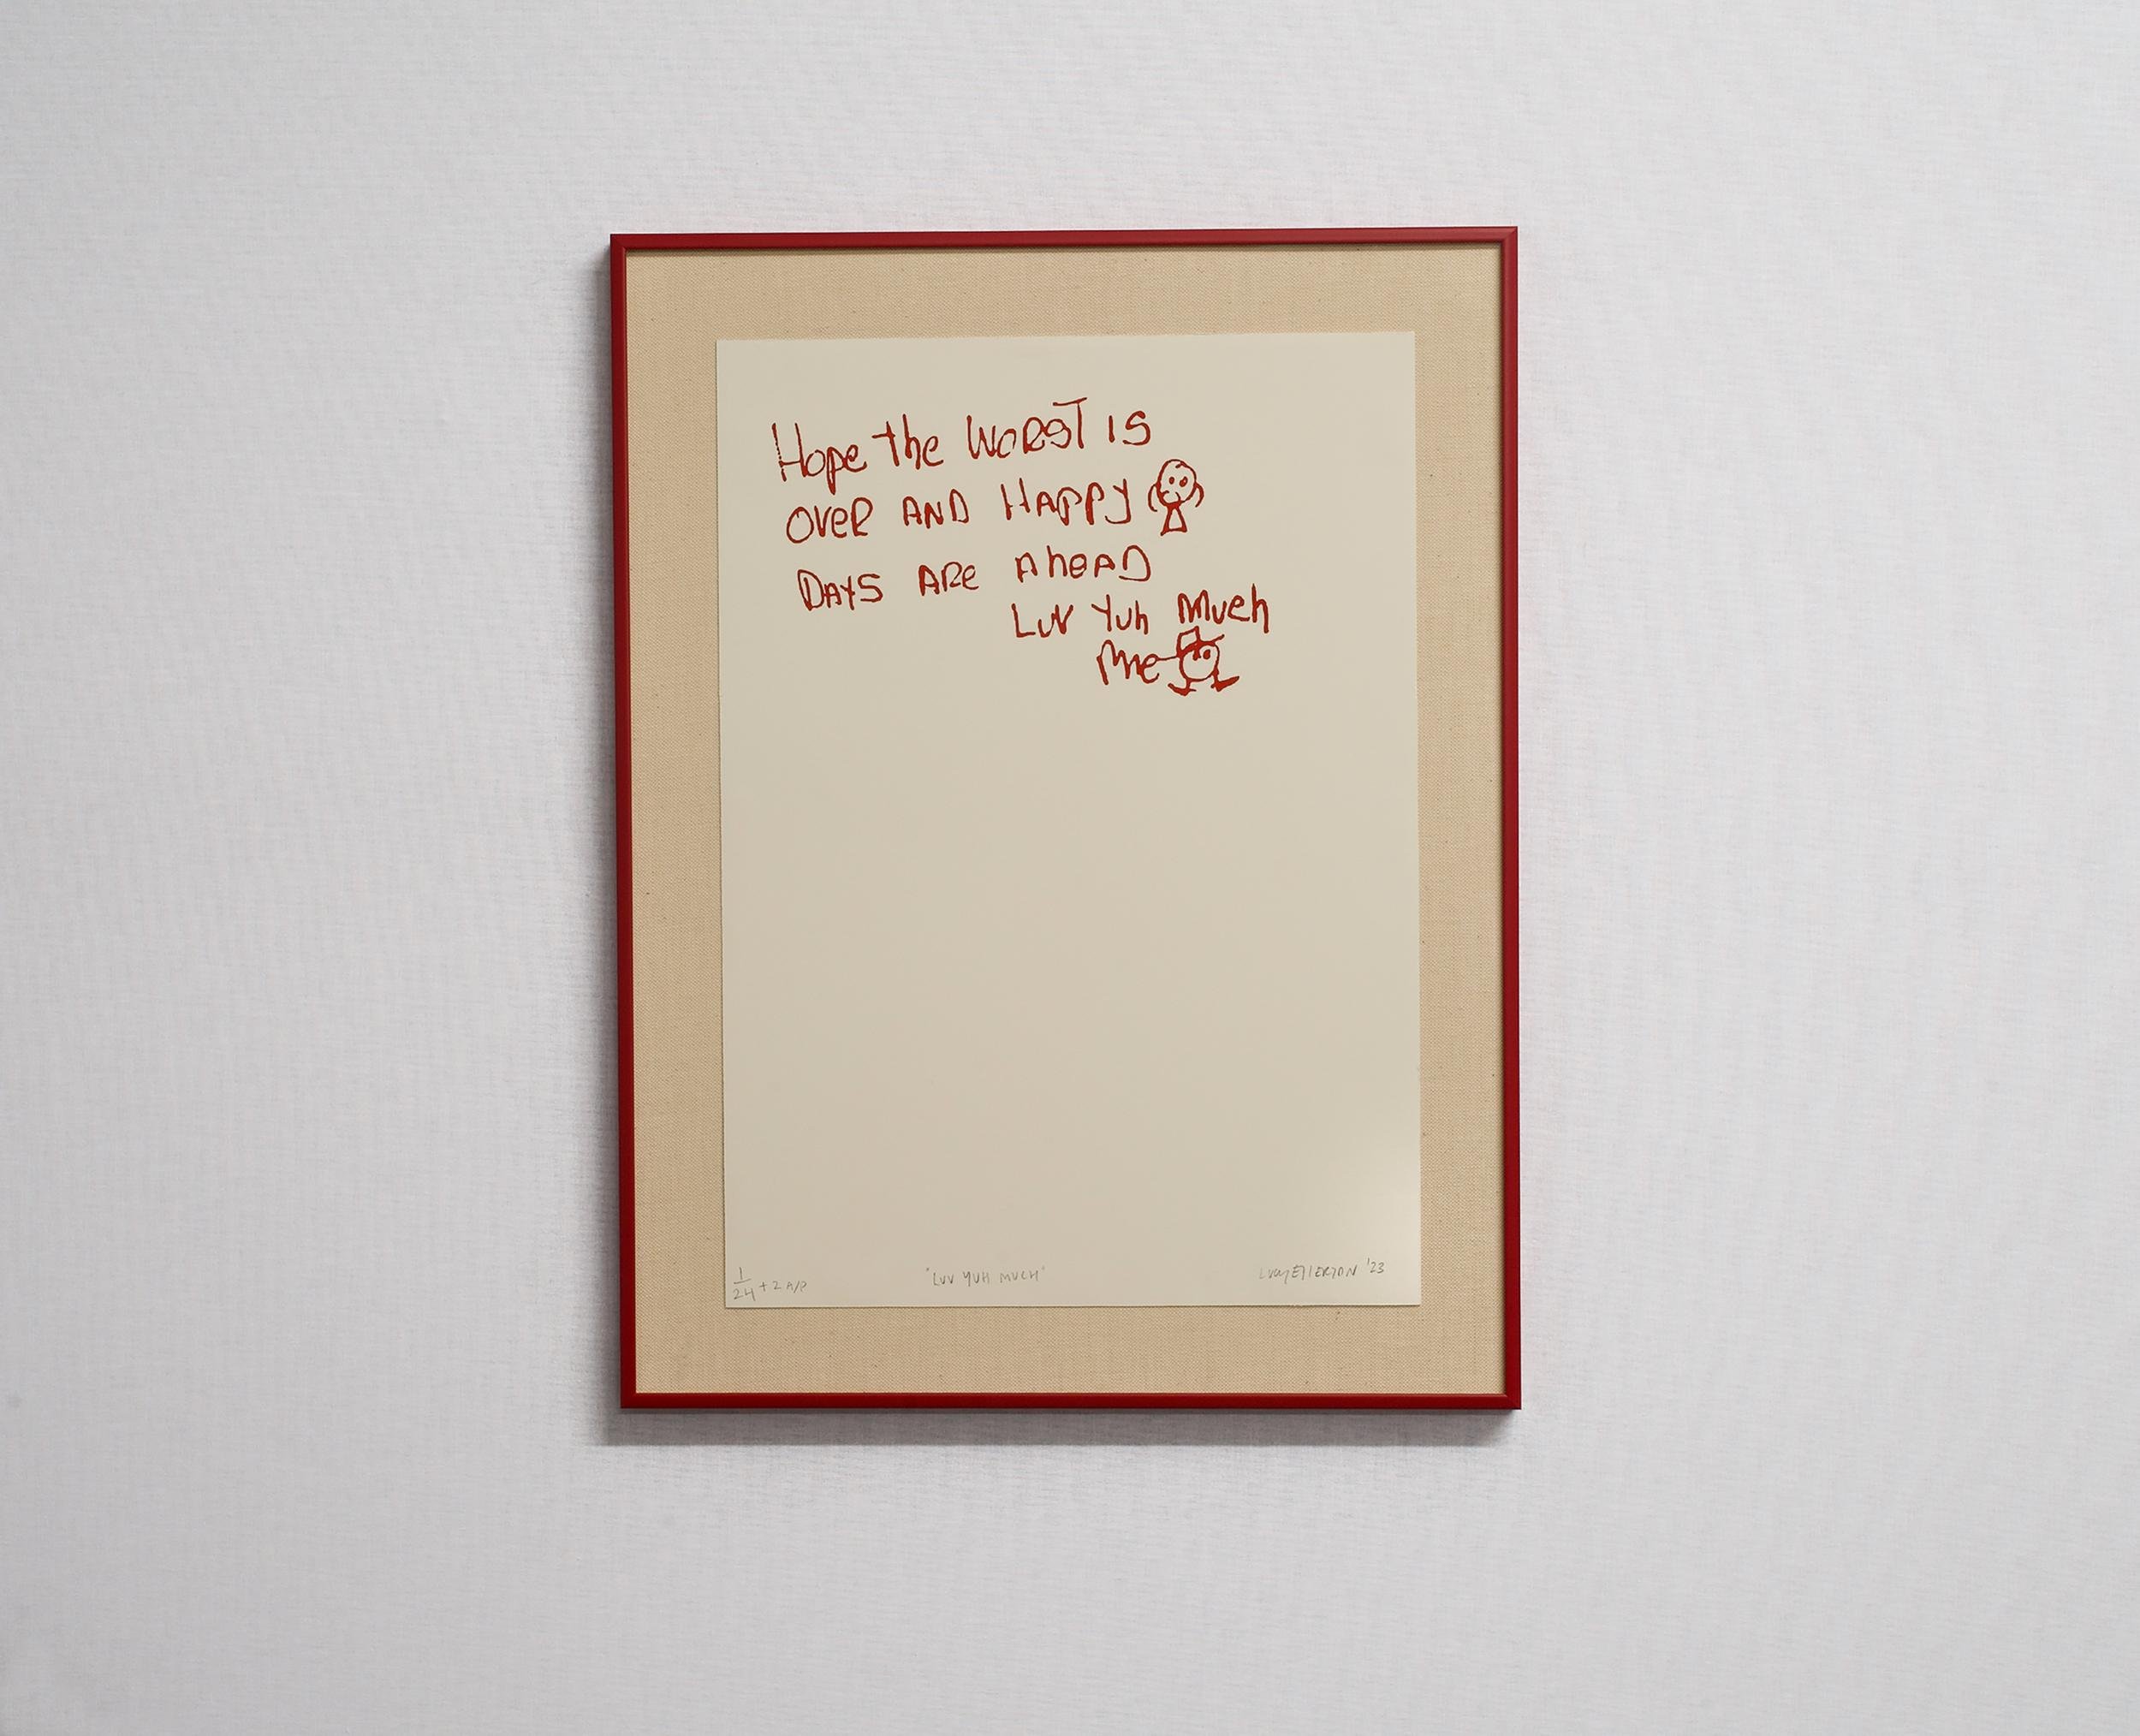 Hope the WORST IS
OVER AND HAPPY
DAYS ARE AheAD
LUV Yuh Much
Me
1/24 + 2 A/P
"LUV YUH MUCH"
'23